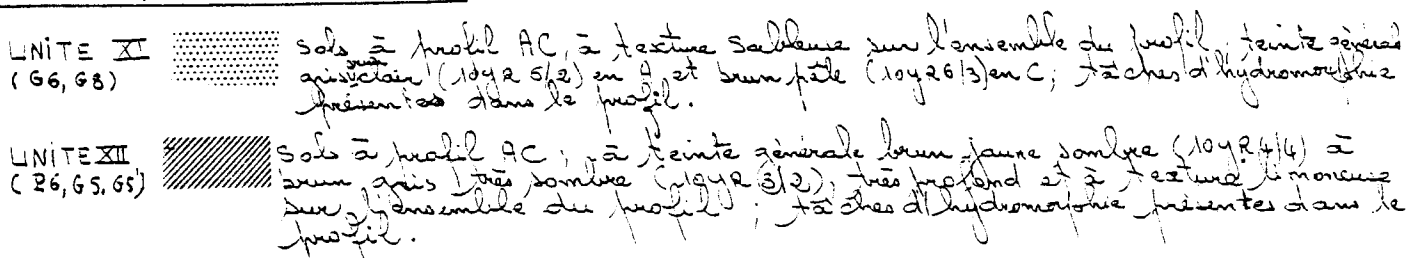 UNITE XI Sols à profil AC, à texture sableuse sur l'ensemble du profil, teinte général
(G6, G8) gris brun clair (10YR 5/2) en A et brun pâle (10YR6/3) en C; tâches d'hydromorphie
présentes dans le profil.
UNITE XII Sols à profil AC; à teinte générale brun-jaune sombre (10YR4/4) à
(P6, G5, G5') brun gris très sombre (10YR 3/2), très profond et à texture limoneuse
sur l'ensemble du profil; tâches d'hydromorphie présentes dans le
profil.